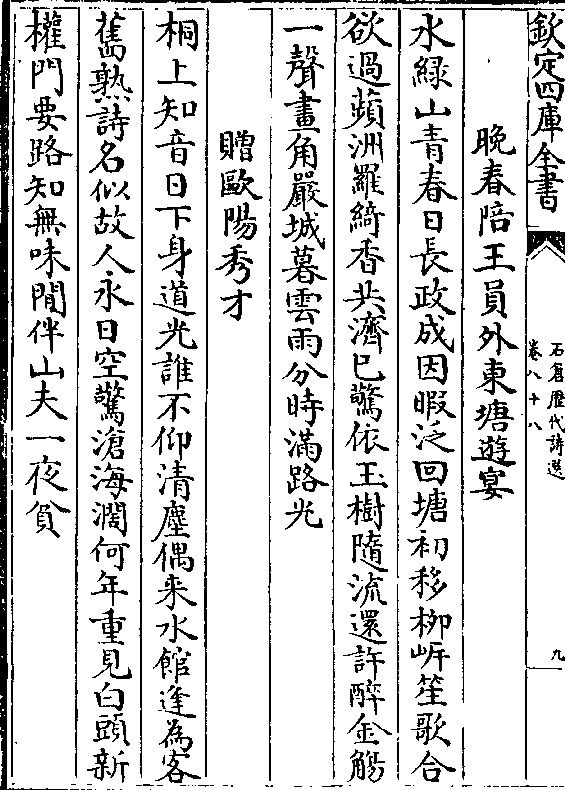 欽定四庫全書
石倉歷代詩選
卷八十八
九
晚春陪王員外東塘遊宴
水綠山青春日長政成因暇泛回塘初移柳岍笙歌合
欲過蘋洲羅綺香共濟已驚依玉樹隨流還許醉金觴
一聲畫角嚴城暮雲雨分時滿路光
贈歐陽秀才
桐上知音日下身道光誰不仰清塵偶来水館逢為客
舊熟詩名似故人永日空驚滄海濶何年重見白頭新
權門要路知無味閒伴山夫一夜貧